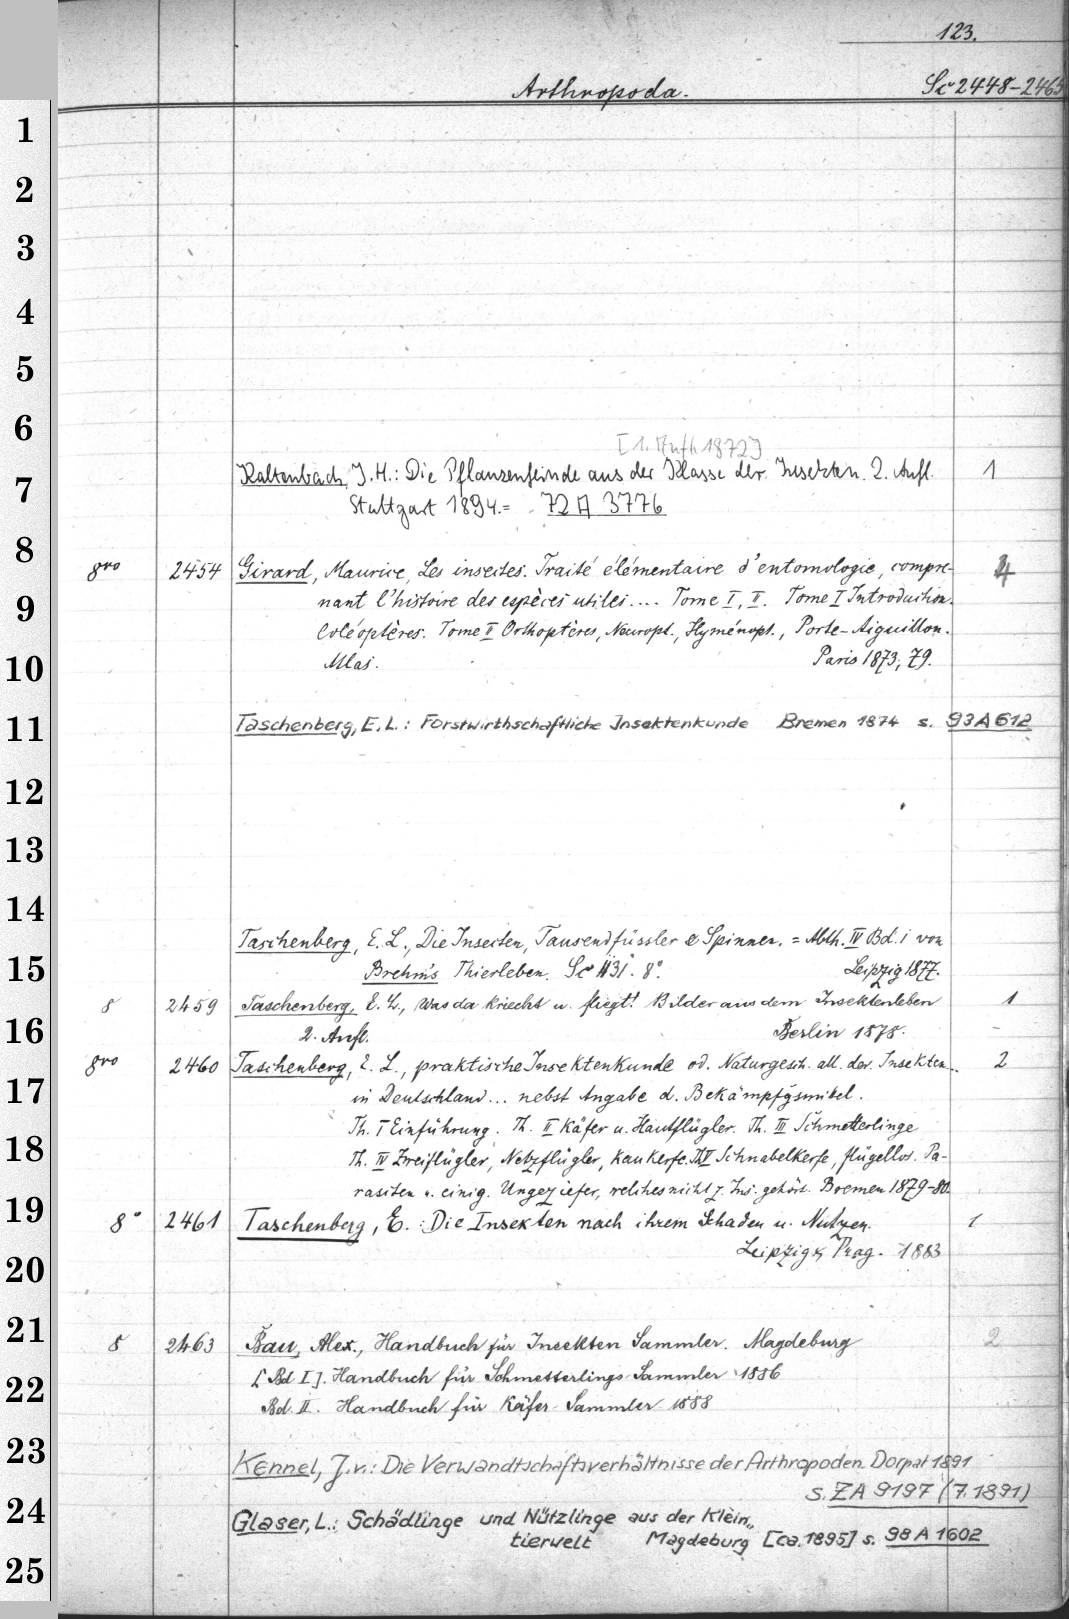 123.
Arthropoda. Sc 2448-2465
[1. Aufl. 1872]
Kaltenbach, J. H.: Die Pflanzenfeinde aus der Klasse der Insekten. 2. Aufl. 1
Stuttgart 1894. = 72 A 3776
gro 2454 Girard, Maurice, Les insectes. Traité élémentaire d'entomologie, compre-
nant l'histoire des espèces utiles.... Tome I, II. Tome I Introduction.
Coléoptères. Tome II Orthoptères, Neuropt., Hyménopt., Porte-Aiguillon.
Atlas. Paris 1873, 79.
Taschenberg, E. L.: Forstwirthschaftliche Insektenkunde Bremen 1874 s. 93 A 612
Taschenberg, E. L., Die Insecten, Tausendfüssler & Spinnen. = Abth. IV Bd. 1 von
Brehm's Thierleben. Sc 1131. 8°. Leipzig 1877.
8 2459 Taschenberg, E. L., Was da kriecht u. fliegt! Bilder aus dem Insektenleben 1
2. Aufl. Berlin 1878.
gro 2460 Taschenberg, E. L., praktische Insektenkunde od. Naturgesch. all. der. Insekten 2
in Deutschland... nebst Angabe d. Bekämpfgsmittel.
Th. I Einführung. Th. II Käfer u. Hautflügler. Th. III Schmetterlinge
Th. IV Zweiflügler, Netzflügler, Kaukerfe. Th V Schnabelkerfe, flügellos. Pa-
rasiten u. einig. Ungeziefer, welches nicht z. Ins. gehört. Bremen 1879-80.
8° 2461 Taschenberg, E.: Die Insekten nach ihrem Schaden u. Nutzen. 1
Leipzig & Prag. 1883
8 2463 Bau, Alex., Handbuch für Insekten Sammler. Magdeburg 2
[Bd I]. Handbuch für Schmetterlings-Sammler 1886
Bd. II. Handbuch für Käfer-Sammler 1888
Kennel, J. v.: Die Verwandtschaftsverhältnisse der Arthropoden. Dorpat 1891
s. ZA 9197 (7.1891)
Glaser, L.: Schädlinge und Nützlinge aus der Klein„
tierwelt Magdeburg [ca. 1895] s. 98 A 1602
1
2
3
4
5
6
7
8
9
10
11
12
13
14
15
16
17
18
19
20
21
22
23
24
25